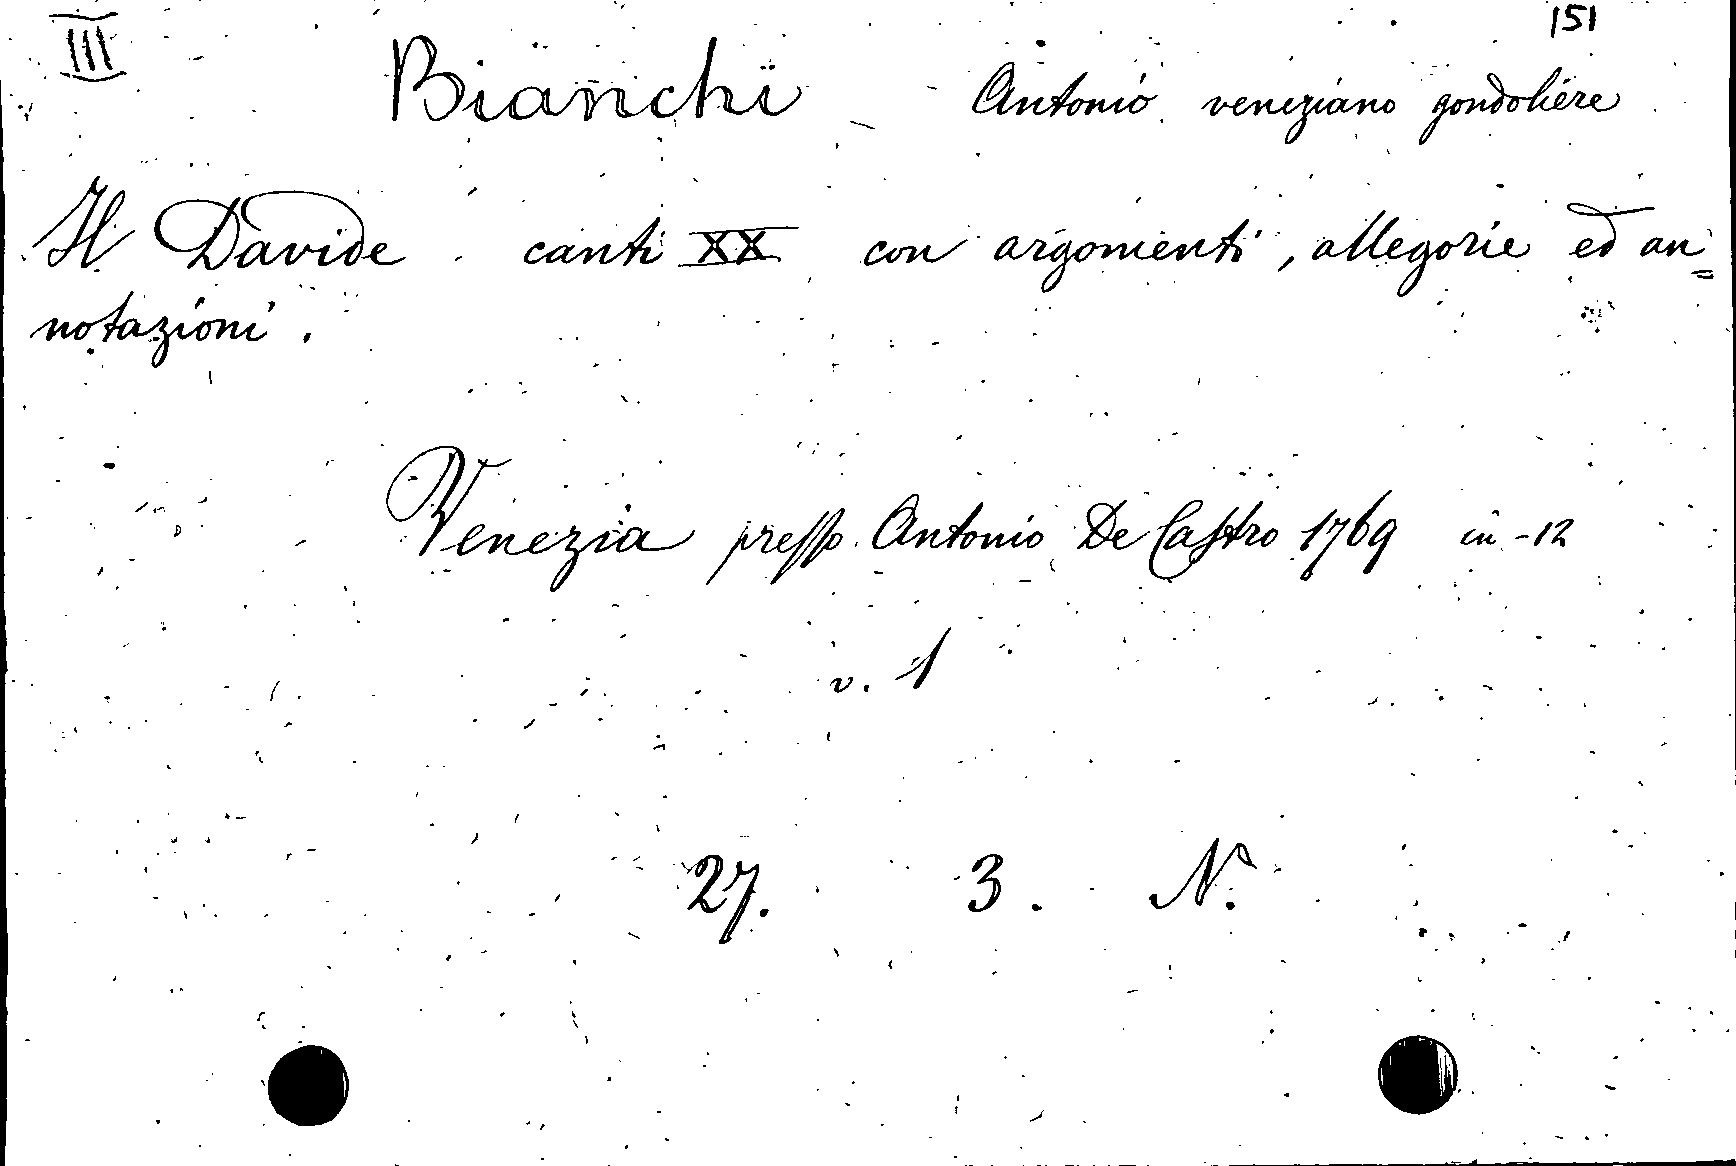 III 151
Bianchi Antonio veneziano gondoliere
Il Davide canti XX con argomenti, allegorie ed an=
notazioni.
Venezia presso Antonio De Castro 1769 in-12
v. 1
27. 3. N.